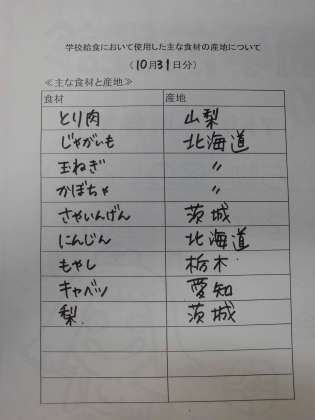 学校給食において使用した主な食材の産地について
（10月31日分）
≪主な食材と産地≫
食材 産地
とり肉 山梨
じゃがいも 北海道
玉ねぎ 〃
かぼちゃ 〃
さやいんげん 茨城
にんじん 北海道
もやし 栃木
キャベツ 愛知
梨 茨城